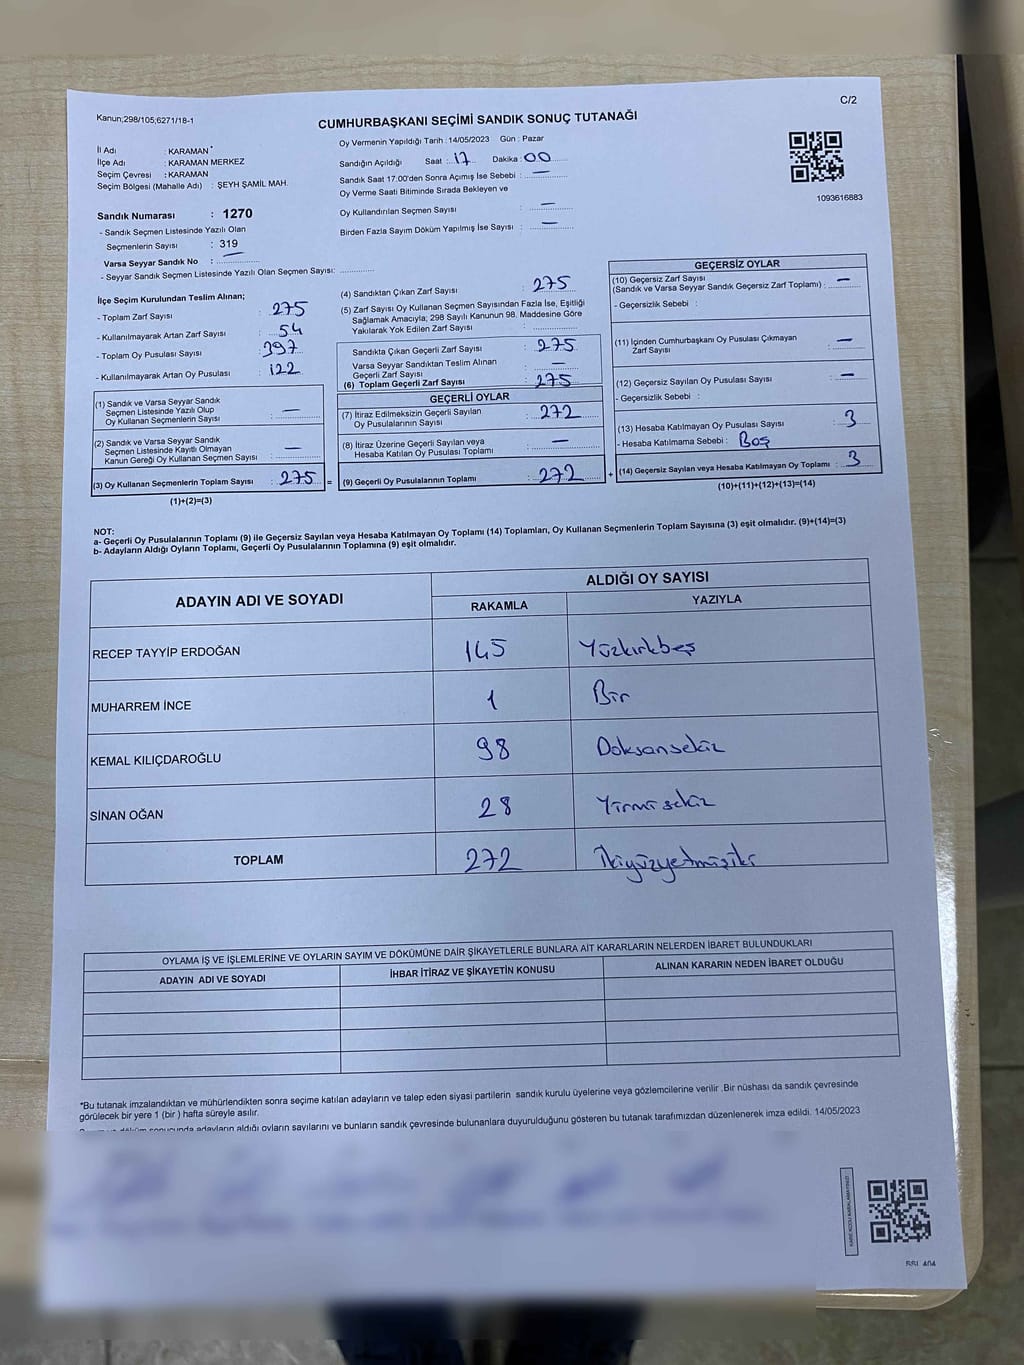 Kanun;298/105;6271/18-1
C/2
CUMHURBAŞKANI SEÇİMİ SANDIK SONUÇ TUTANAĞI
İl Adı : KARAMAN
İlçe Adı : KARAMAN MERKEZ
Seçim Çevresi : KARAMAN
Seçim Bölgesi (Mahalle Adı) : ŞEYH ŞAMİL MAH.
Sandık Numarası : 1270
- Sandık Seçmen Listesinde Yazılı Olan
Seçmenlerin Sayısı : 319
Varsa Seyyar Sandık No : —
- Seyyar Sandık Seçmen Listesinde Yazılı Olan Seçmen Sayısı:
Oy Vermenin Yapıldığı Tarih : 14/05/2023 Gün : Pazar
Sandığın Açıldığı Saat : 17 Dakika : 00
Sandık Saat 17.00'den Sonra Açımış İse Sebebi : —
Oy Verme Saati Bitiminde Sırada Bekleyen ve
Oy Kullandırılan Seçmen Sayısı : —
Birden Fazla Sayım Döküm Yapılmış İse Sayısı : —
1093616883
İlçe Seçim Kurulundan Teslim Alınan;
- Toplam Zarf Sayısı : 275
- Kullanılmayarak Artan Zarf Sayısı : 54
- Toplam Oy Pusulası Sayısı : 397
- Kullanılmayarak Artan Oy Pusulası : 122
(1) Sandık ve Varsa Seyyar Sandık
Seçmen Listesinde Yazılı Olup
Oy Kullanan Seçmenlerin Sayısı : —
(2) Sandık ve Varsa Seyyar Sandık
Seçmen Listesinde Kayıtlı Olmayan
Kanun Gereği Oy Kullanan Seçmen Sayısı : —
(3) Oy Kullanan Seçmenlerin Toplam Sayısı : 275 =
(1)+(2)=(3)
(4) Sandıktan Çıkan Zarf Sayısı : 275
(5) Zarf Sayısı Oy Kullanan Seçmen Sayısından Fazla İse, Eşitliği
Sağlamak Amacıyla; 298 Sayılı Kanunun 98. Maddesine Göre
Yakılarak Yok Edilen Zarf Sayısı :
Sandıkta Çıkan Geçerli Zarf Sayısı : 275
Varsa Seyyar Sandıktan Teslim Alınan
Geçerli Zarf Sayısı :
(6) Toplam Geçerli Zarf Sayısı : 275
GEÇERLİ OYLAR
(7) İtiraz Edilmeksizin Geçerli Sayılan
Oy Pusulalarının Sayısı : 272
(8) İtiraz Üzerine Geçerli Sayılan veya
Hesaba Katılan Oy Pusulası Toplamı : —
(9) Geçerli Oy Pusulalarının Toplamı : 272 +
GEÇERSİZ OYLAR
(10) Geçersiz Zarf Sayısı
(Sandık ve Varsa Seyyar Sandık Geçersiz Zarf Toplamı) : —
- Geçersizlik Sebebi :
(11) İçinden Cumhurbaşkanı Oy Pusulası Çıkmayan
Zarf Sayısı : —
(12) Geçersiz Sayılan Oy Pusulası Sayısı : —
- Geçersizlik Sebebi :
(13) Hesaba Katılmayan Oy Pusulası Sayısı : 3
- Hesaba Katılmama Sebebi : Boş
(14) Geçersiz Sayılan veya Hesaba Katılmayan Oy Toplamı : 3
(10)+(11)+(12)+(13)=(14)
NOT:
a- Geçerli Oy Pusulalarının Toplamı (9) ile Geçersiz Sayılan veya Hesaba Katılmayan Oy Toplamı (14) Toplamları, Oy Kullanan Seçmenlerin Toplam Sayısına (3) eşit olmalıdır. (9)+(14)=(3)
b- Adayların Aldığı Oyların Toplamı, Geçerli Oy Pusulalarının Toplamına (9) eşit olmalıdır.
ADAYIN ADI VE SOYADI
ALDIĞI OY SAYISI
RAKAMLA YAZIYLA
RECEP TAYYİP ERDOĞAN 145 Yüzkırkbeş
MUHARREM İNCE 1 Bir
KEMAL KILIÇDAROĞLU 98 Doksansekiz
SİNAN OĞAN 28 Yirmisekiz
TOPLAM 272 İkiyüzyetmişiki
OYLAMA İŞ VE İŞLEMLERİNE VE OYLARIN SAYIM VE DÖKÜMÜNE DAİR ŞİKAYETLERLE BUNLARA AİT KARARLARIN NELERDEN İBARET BULUNDUKLARI
ADAYIN ADI VE SOYADI İHBAR İTİRAZ VE ŞİKAYETİN KONUSU ALINAN KARARIN NEDEN İBARET OLDUĞU
*Bu tutanak imzalandıktan ve mühürlendikten sonra seçime katılan adayların ve talep eden siyasi partilerin sandık kurulu üyelerine veya gözlemcilerine verilir .Bir nüshası da sandık çevresinde
görülecek bir yere 1 (bir ) hafta süreyle asılır.
sonucunda adayların aldığı oyların sayılarını ve bunların sandık çevresinde bulunanlara duyurulduğunu gösteren bu tutanak tarafımızdan düzenlenerek imza edildi. 14/05/2023